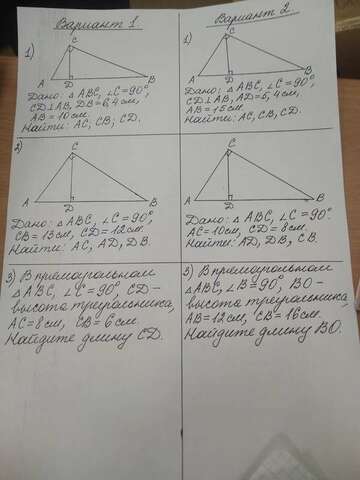 Вариант 1
1)
C
A
D
B
Дано: △ ABC, ∠C = 90°,
CD⊥AB, DB = 6,4 см,
AB = 10 см.
Найти: AC, CB, CD.
2)
C
A
D
B
Дано: △ ABC, ∠C = 90°,
CB = 13 см, CD = 12 см.
Найти: AC, AD, DB.
3) В прямоугольном
△ ABC, ∠C = 90°, CD –
высота треугольника,
AC = 8 см, CB = 6 см.
Найдите длину CD.
Вариант 2
1)
C
A
D
B
Дано: △ ABC, ∠C = 90°,
CD⊥AB, AD = 5,4 см,
AB = 15 см.
Найти: AC, CB, CD.
2)
C
A
D
B
Дано: △ ABC, ∠C = 90°.
AC = 10 см, CD = 8 см.
Найти: AD, DB, CB.
3) В прямоугольном
△ABC, ∠B = 90°, BO –
высота треугольника,
AB = 12 см, CB = 16 см.
Найдите длину BO.